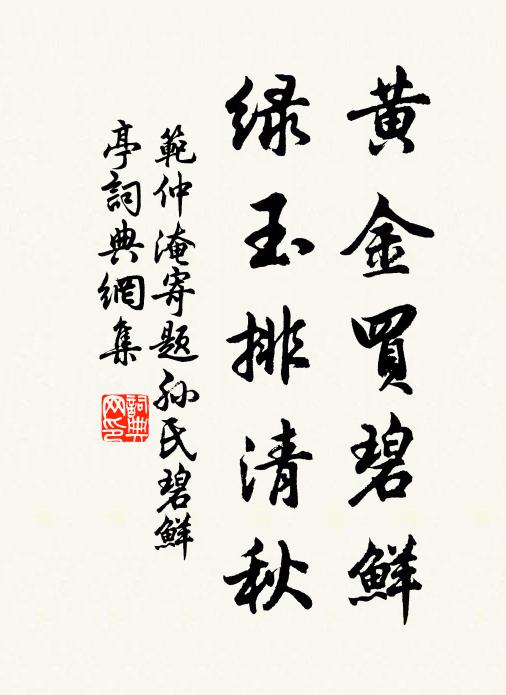 黄金買碧鮮
绿玉排清秋
範仲淹寄題孙氏碧鮮
亭詞典網集
詞典
网印